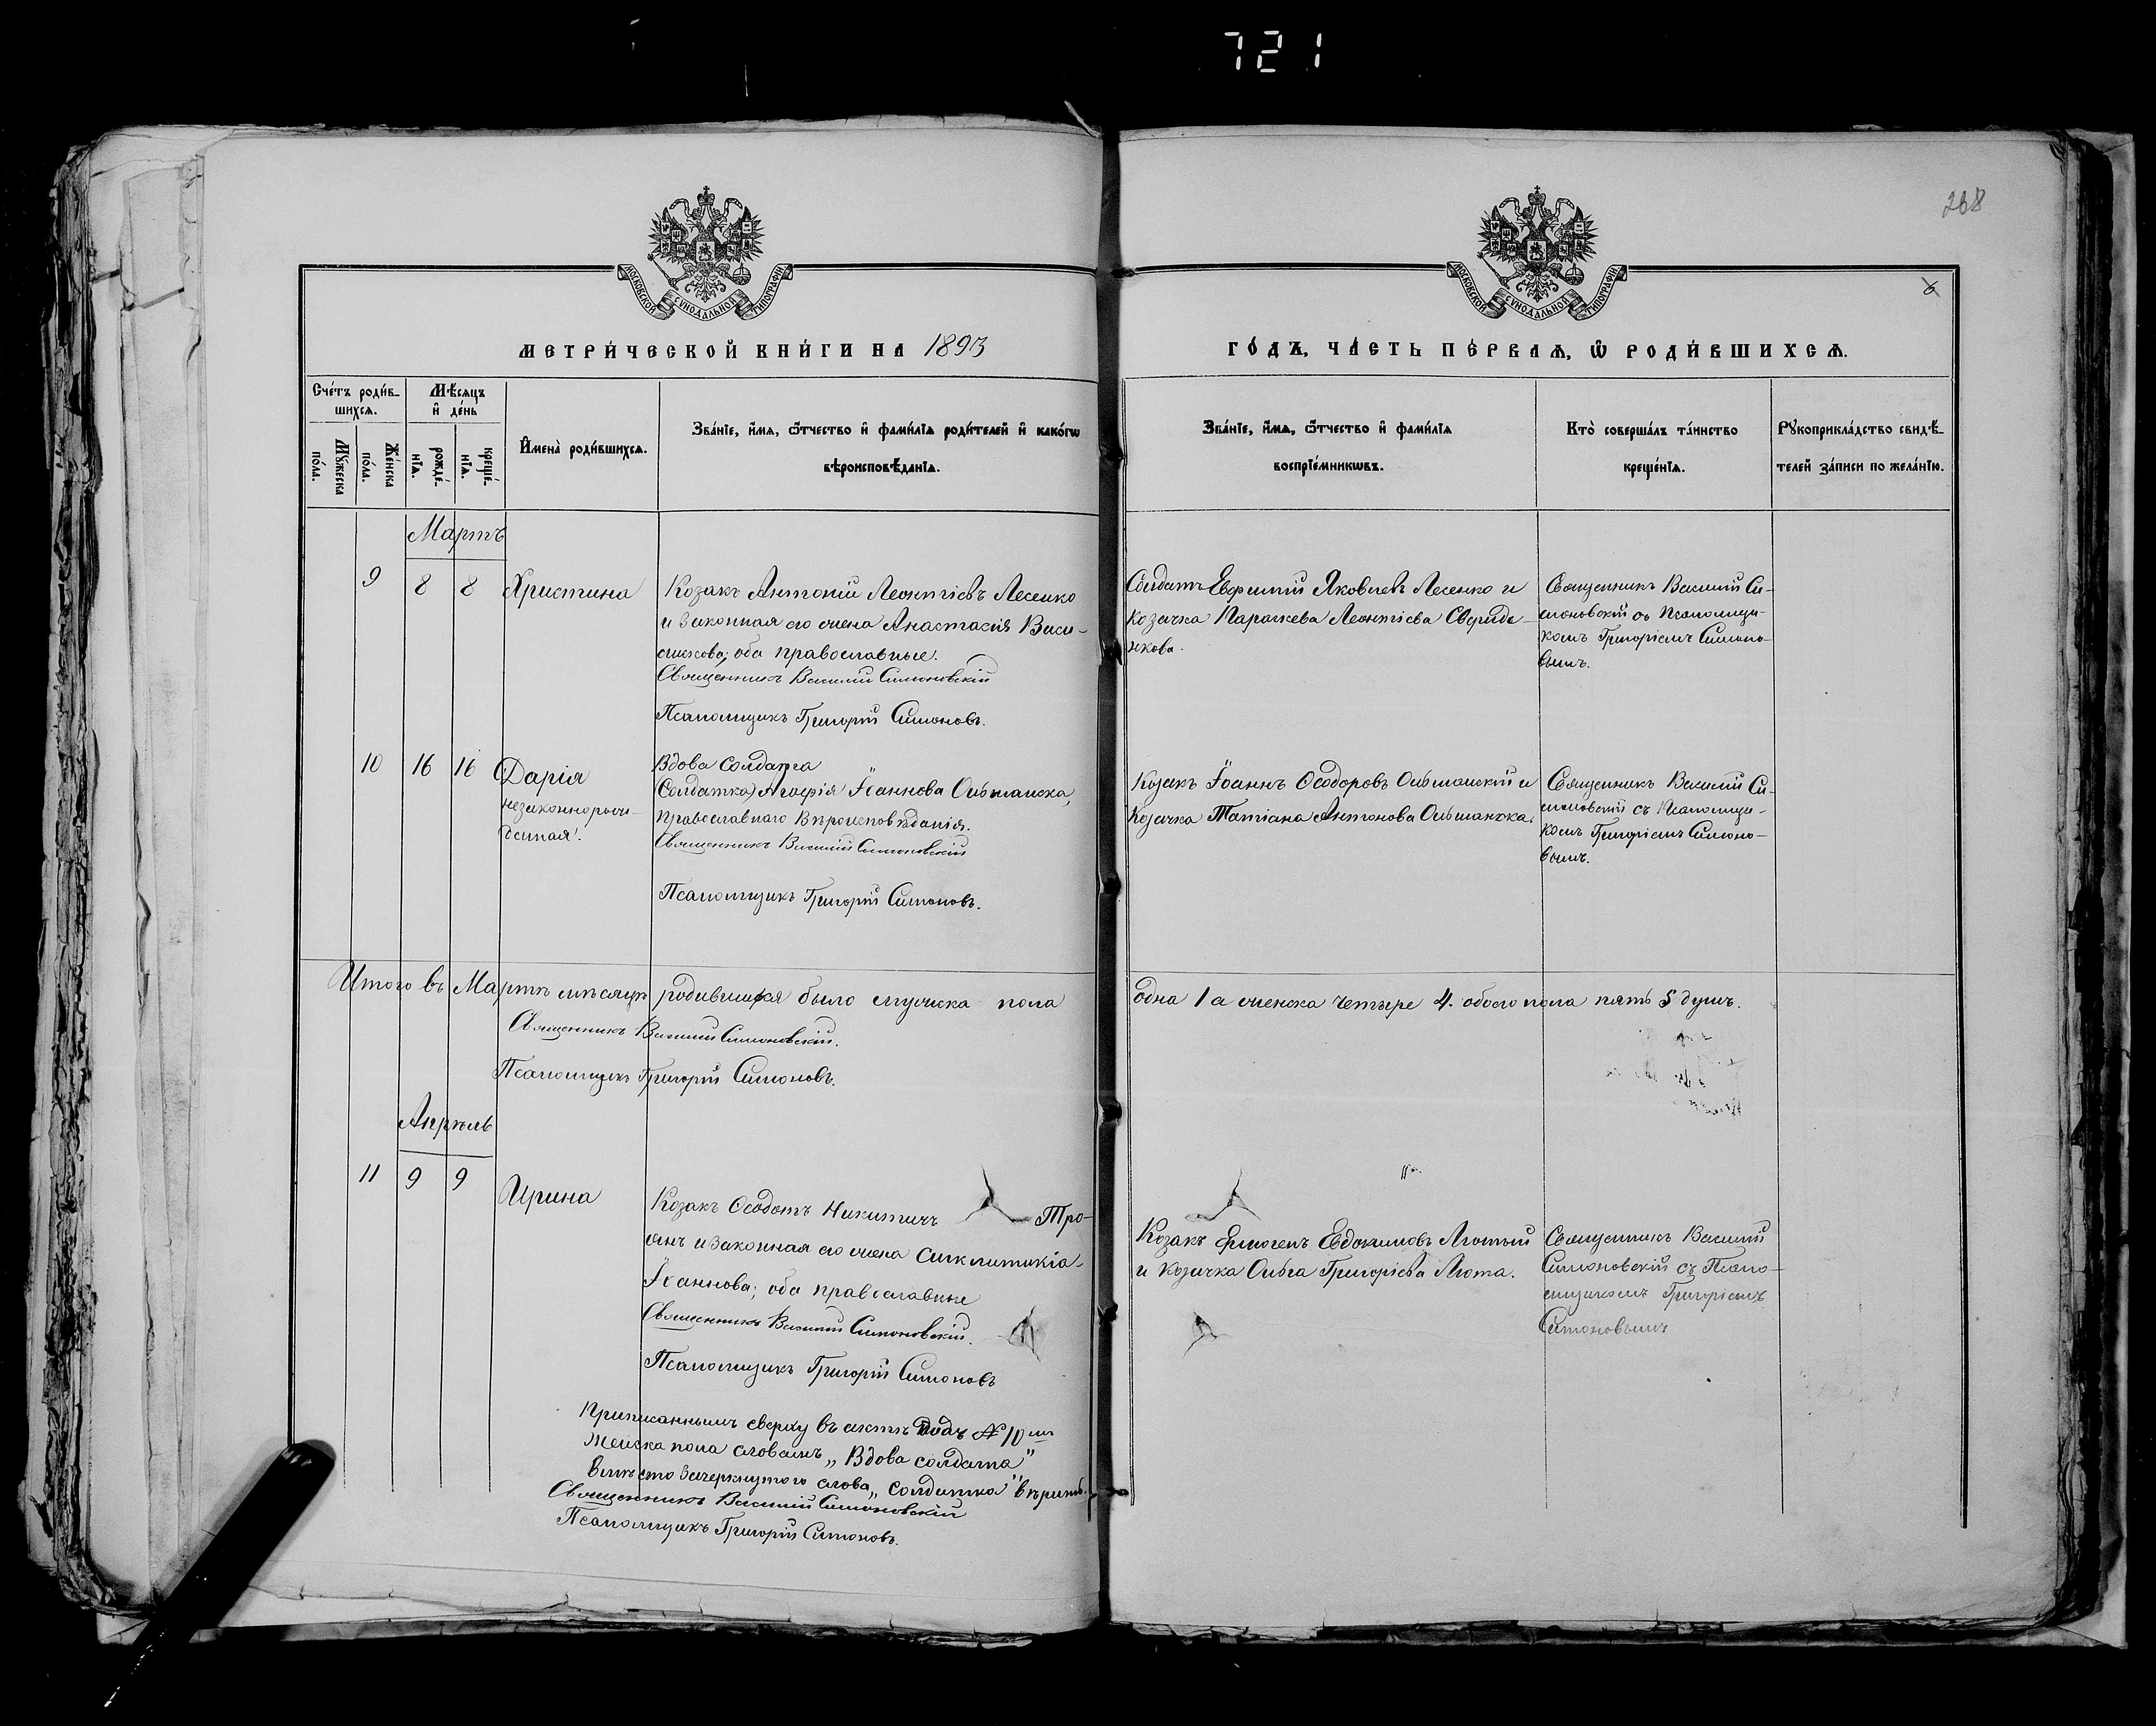 721
268
6
МОСКОВСКОЙ СѴНОДАЛЬНОЙ ТИПОГРАФІИ
МОСКОВСКОЙ СѴНОДАЛЬНОЙ ТИПОГРАФІИ
МЕТРИ́ЧЕСКОЙ КНИ́ГИ НА 1893
ГО́ДЪ, ЧА́СТЬ ПЕ́РВАѦ, Ѽ РОДИ́ВШИХСѦ.
Сче́тъ роди́в-
шихсѧ.
Мѣ́сяцъ
и҆ де́нь
Мꙋ́жеска
по́ла.
Же́нска
по́ла.
рожде́-
нїѧ.
креще́-
нїѧ.
И҆мена̀ роди́вшихсѧ.
Зва́нїе, и҆́мѧ, ѻ҆́тчество и҆ фами́лїѧ роди́телей и҆ како́гѡ
вѣроисповѣ́данїѧ.
Зва́нїе, и҆́мѧ, ѻ҆́тчество и҆ фами́лїѧ
воспрїе́мникѡвъ.
Кто̀ соверша́лъ та́инство
креще́нїѧ.
Рꙋкоприкла́дство свидѣ́-
телей за́писи по жела́нїю.
Мартъ
9 8 8 Христина
Козакъ Антоній Леонтіевъ Лесенко
и законная его жена Анастасія Васи-
ліева; оба православные.
Священникъ Василій Симоновскій
Псаломщикъ Григорій Симоновъ.
Солдатъ Евфимій Яковлевъ Лесенко и
козачка Параскева Леонтіева Свириде-
нкова.
Священникъ Василій Си-
моновскій съ Псаломщи-
комъ Григоріемъ Симоно-
вымъ.
10 16 16 Дарія
незаконнорож-
денная.
Вдова Солдата
(Солдатка) Агафія Іоаннова Ольшанска,
Православнаго Вѣроисповѣданія.
Священникъ Василій Симоновскій
Псаломщикъ Григорій Симоновъ.
Козакъ Іоаннъ Ѳеодоровъ Ольшанскій и
Козачка Татіана Антонова Ольшанска.
Священникъ Василій Си-
моновскій съ Псаломщи-
комъ Григоріемъ Симоно-
вымъ.
Итого въ Мартѣ мѣсяцѣ родившихся было мужеска пола
одна 1 а женска четыре 4. обоего пола пять 5 душъ.
Священникъ Василій Симоновскій.
Псаломщикъ Григорій Симоновъ.
Апрѣль
11 9 9 Ирина
Козакъ Ѳеодотъ Никитичъ Тро-
янъ и законная его жена Синклитикія
Іоаннова; оба православные
Священникъ Василій Симоновскій.
Псаломщикъ Григорій Симоновъ
Козакъ Ермогенъ Евдокимовъ Лютый
и козачка Ольга Григорієва Люта.
Священникъ Василій
Симоновскій съ Псало-
мщикомъ Григоріемъ
Симоновымъ
Приписаннымъ сверху въ актѣ подъ № 10мъ
Женска пола словамъ „Вдова солдата"
вмѣсто зачеркнутого слова „солдатка" вѣрить.
Священникъ Василій Симоновскій
Псаломщикъ Григорій Симоновъ.